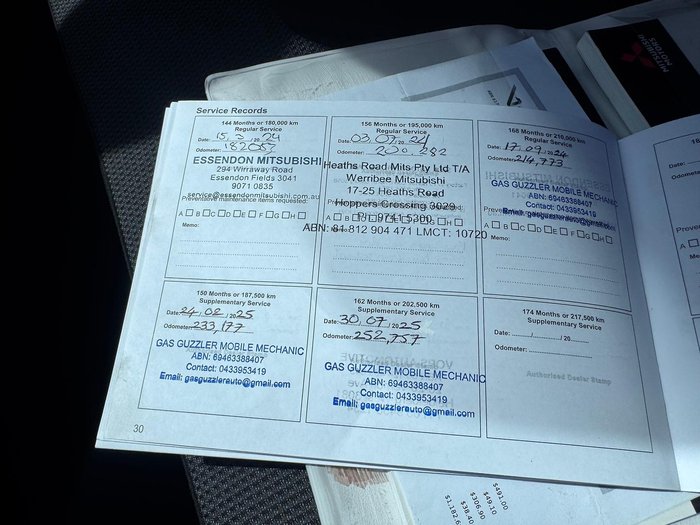 MITSUBISHI
MOTORS
Service Records
144 Months or 180,000 km
Regular Service
Date: 15, 3, 2024
Odometer:
ESSENDON MITSUBISHI
294 Wirraway Road
Essendon Fields 3041
9071 0835
service@essendonmitsubishi.com.au
Preventative maintenance items requested:
A B C D E F G H
Memo:
156 Months or 195,000 km
Regular Service
Date: 03, 07, 2024
Odometer: 200,282
Heaths Road Mits Pty Ltd T/A
Werribee Mitsubishi
17-25 Heaths Road
Hoppers Crossing 3029
PH: 9741 5300
ABN: 81 812 904 471 LMCT: 10720
168 Months or 210,000 km
Regular Service
Date: 17, 09, 2024
Odometer: 214,773
GAS GUZZLER MOBILE MECHANIC
ABN: 69463388407
Contact: 0433953419
Email: gasguzzlerauto@gmail.com
A B C D E F G H
Memo:
150 Months or 187,500 km
Supplementary Service
Date: 24, 02, 2025
Odometer: 233,177
GAS GUZZLER MOBILE MECHANIC
ABN: 69463388407
Contact: 0433953419
Email: gasguzzlerauto@gmail.com
162 Months or 202,500 km
Supplementary Service
Date: 30, 07, 2025
Odometer: 252,757
GAS GUZZLER MOBILE MECHANIC
ABN: 69463388407
Contact: 0433953419
Email: gasguzzlerauto@gmail.com
174 Months or 217,500 km
Supplementary Service
Date: ____/____/20____
Odometer:
Authorised Dealer Stamp
30
$491.00
$49.10
$306.90
$38.40
$1,182.6